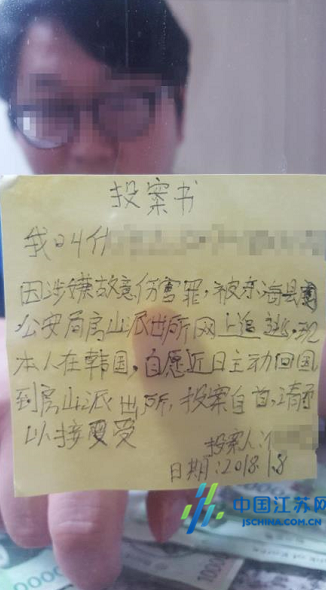 投案书
我叫付
因涉嫌故意伤害罪,被东海县
公安局房山派出所网上追逃,现
本人在韩国,自愿近日主动回国
到房山派出所,投案自首,请予
以接受
投案人:
日期:2018.1.8
中国江苏网
JSCHINA.COM.CN
10000
1000